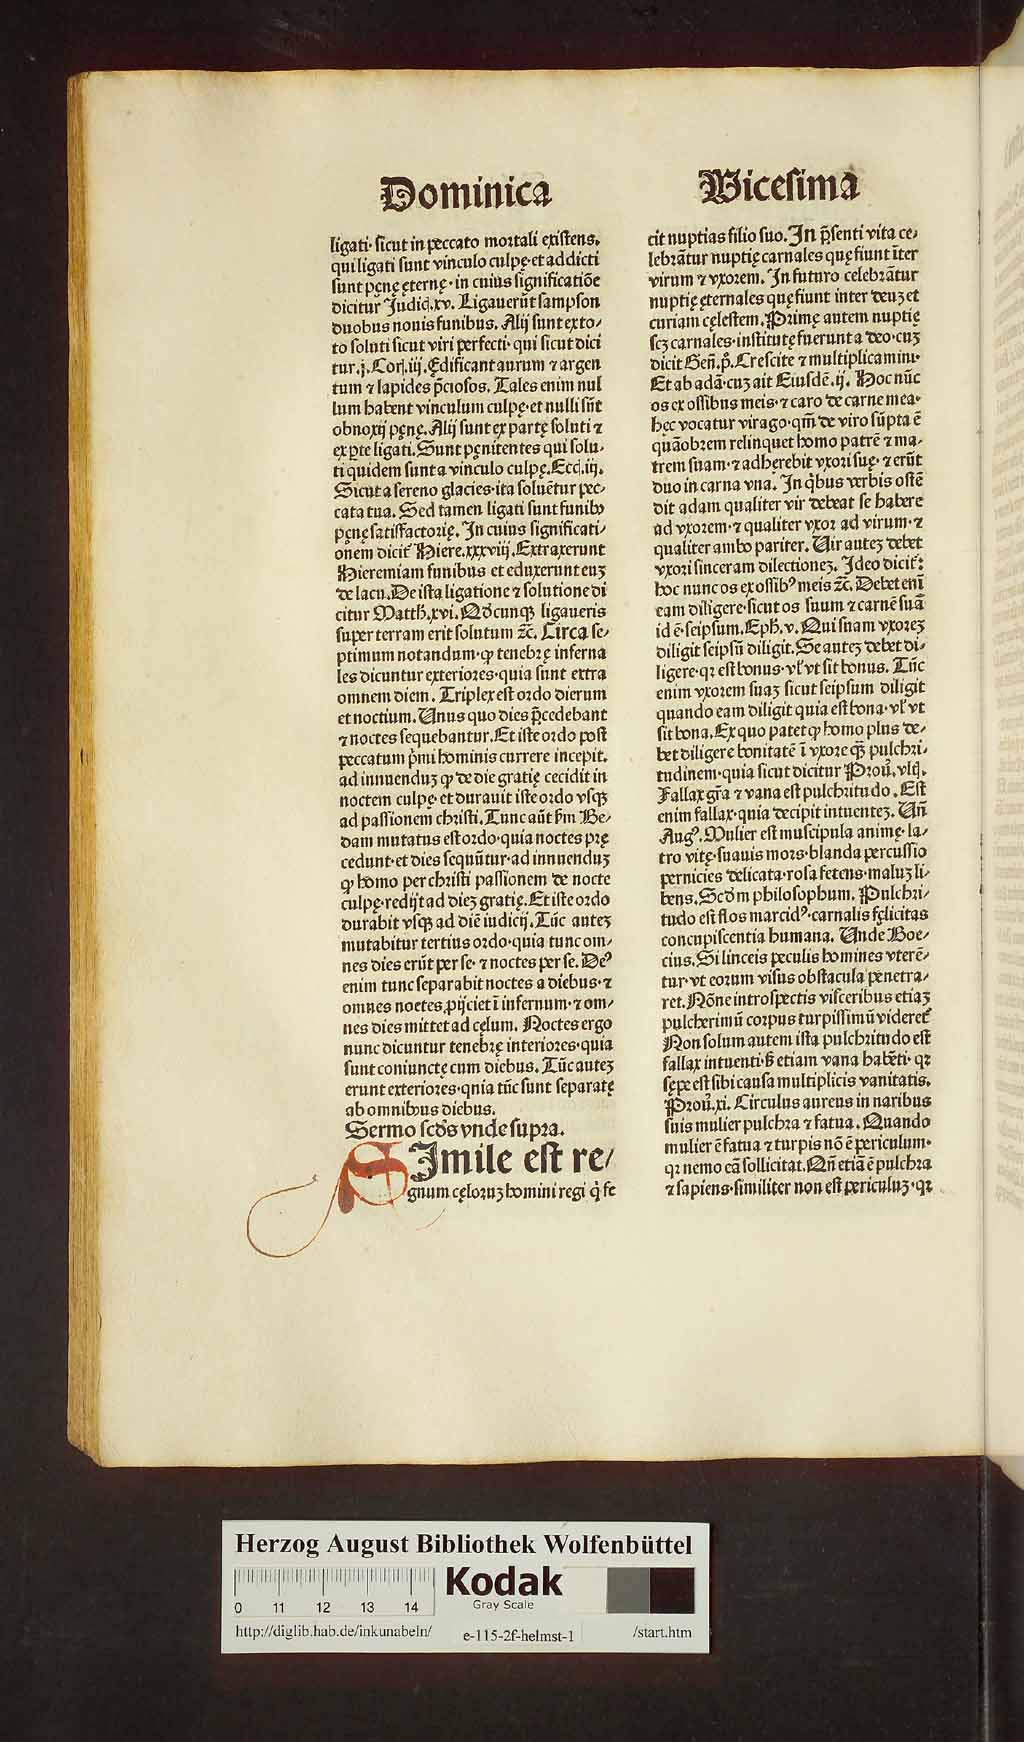 Dominica
ligati· sicut in peccato mortali existens.
qui ligati sunt vinculo culpę· et addicti
sunt pęnę eternę· in cuius significatiōe
dicitur Judicꝭ.xv. Ligauerūt sampson
duobus nouis funibus. Alij sunt ex to⸗
to soluti sicut viri perfecti· qui sicut dici
tur.j. Corꝭ.iij. Ędificant aurum ⁊ argen
tum ⁊ lapides p̄ciosos. Tales enim nul
lum habent vinculum culpę· et nulli sūt
obnoxij pęnę. Alij sunt ex partę soluti ⁊
ex ꝑte ligati. Sunt pęnitentes qui solu⸗
ti quidem sunt a vinculo culpę. Eccꝭ.iij.
Sicut a sereno glacies· ita soluētur pec⸗
cata tua. Sed tamen ligati sunt funibꝰ
pęnę satisfactorię. In cuius significati⸗
onem dicit̄ Hiere.xxxviij. Extraxerunt
Hieremiam funibus et eduxerunt euꝫ
de lacu. De ista ligatione ⁊ solutione di
citur Matth.xvi. Qd̄cunqꝫ ligaueris
super terram erit solutum ⁊c̄. Circa se⸗
ptimum notandum· ꝙ tenebrę inferna
les dicuntur exteriores· quia sunt extra
omnem diem. Triplex est ordo dierum
et noctium. Unus quo dies p̄cedebant
⁊ noctes sequebantur. Et iste ordo post
peccatum p̄mi hominis currere incepit.
ad innuenduꝫ ꝙ de die gratię cecidit in
noctem culpę· et durauit iste ordo vsqꝫ
ad passionem christi. Tunc aūt ẜm Be⸗
dam mutatus est ordo· quia noctes prę
cedunt· et dies sequūtur· ad innuenduꝫ
ꝙ homo per christi passionem de nocte
culpę· redijt ad dieꝫ gratię. Et iste ordo
durabit vsqꝫ ad diē iudicij. Tūc auteꝫ
mutabitur tertius ordo· quia tunc om⸗
nes dies erūt per se· ⁊ noctes per se. Deꝰ
enim tunc separabit noctes a diebus· ⁊
omnes noctes ꝓijciet ī infernum· ⁊ om⸗
nes dies mittet ad cęlum. Noctes ergo
nunc dicuntur tenebrę interiores· quia
sunt coniunctę cum diebus. Tūc auteꝫ
erunt exteriores· qnia tūc sunt separatę
ab omnibus diebus.
Sermo scd̄s vnde supra.
SImile est re⸗
gnum cęloruꝫ homini regi q̇ fe
Vicesima
cit nuptias filio suo. In p̄senti vita ce⸗
lebrātur nuptię carnales quę fiunt īter
virum ⁊ vxorem. In futuro celebrātur
nuptię ęternales quę fiunt inter deuꝫ et
curiam cęlestem. Primę autem nuptię
scꝫ carnales· institutę fuerunt a deo· cuꝫ
dicit Geñ.p̊. Crescite ⁊ multiplicamini·
Et ab adā· cuꝫ ait Eiusdē.ij. Hoc nūc
os ex ossibus meis· ⁊ caro de carne mea·
hęc vocatur virago· qm̄ de viro sūpta ē
quāobrem relinquet homo patrē ⁊ ma⸗
trem suam· ⁊ adherebit vxori suę· ⁊ erūt
duo in carna vna. In q̇bus verbis ostē
dit adam qualiter vir debeat se habere
ad vxorem· ⁊ qualiter vxor ad virum· ⁊
qualiter ambo pariter. Uir auteꝫ debet
vxori sinceram dilectioneꝫ. Ideo dicit̄:
hoc nunc os ex ossibꝰ meis ⁊c̄. Debet enī
eam diligere· sicut os suum ⁊ carnē suā
id ē· seipsum. Eph̄.v. Qui suam vxoreꝫ
diligit seipsū diligit. Se auteꝫ debet di⸗
ligere· qꝛ est bonus· vl̓ vt sit bonus. Tūc
enim vxorem suaꝫ sicut seipsum diligit
quando eam diligit quia est bona· vl̓ vt
sit bona. Ex quo patet ꝙ homo plus de⸗
bet diligere bonitatē ī vxore qꝫ̄ pulchri⸗
tudinem· quia sicut dicitur Prou̓.vlꝭ.
Fallax gr̄a ⁊ vana est pulchritudo. Est
enim fallax· quia decipit intuenteꝫ. Uñ
Augꝰ. Mulier est muscipula animę· la⸗
tro vitę· suauis mors· blanda percussio
pernicies delicata· rosa fetens· maluꝫ li⸗
bens. Scd̄m philosophum. Pulchri⸗
tudo est flos marcidꝰ· carnalis fęlicitas
concupiscentia humana. Unde Boe⸗
cius. Si linceis peculis homines vterē⸗
tur· vt eorum visus obstacula penetra⸗
ret. Nōne introspectis visceribus etiaꝫ
pulcherimū corpus turpissimū videret̄
Non solum autem ista pulchritudo est
fallax intuenti· ẜ etiam vana habēti· qꝛ
sępe est sibi causa multiplicis vanitatis.
Prou̓.xi. Circulus aureus in naribus
suis mulier pulchra ⁊ fatua. Quando
mulier ē fatua ⁊ turpis nō ē periculum·
qꝛ nemo eā sollicitat. Qñ etiā ē pulchra
⁊ sapiens· similiter non est periculuꝫ· qꝛ
Herzog August Bibliothek Wolfenbüttel
0 11 12 13 14
Kodak
Gray Scale
http://diglib.hab.de/inkunabeln/ e-115-2f-helmst-1 /start.htm